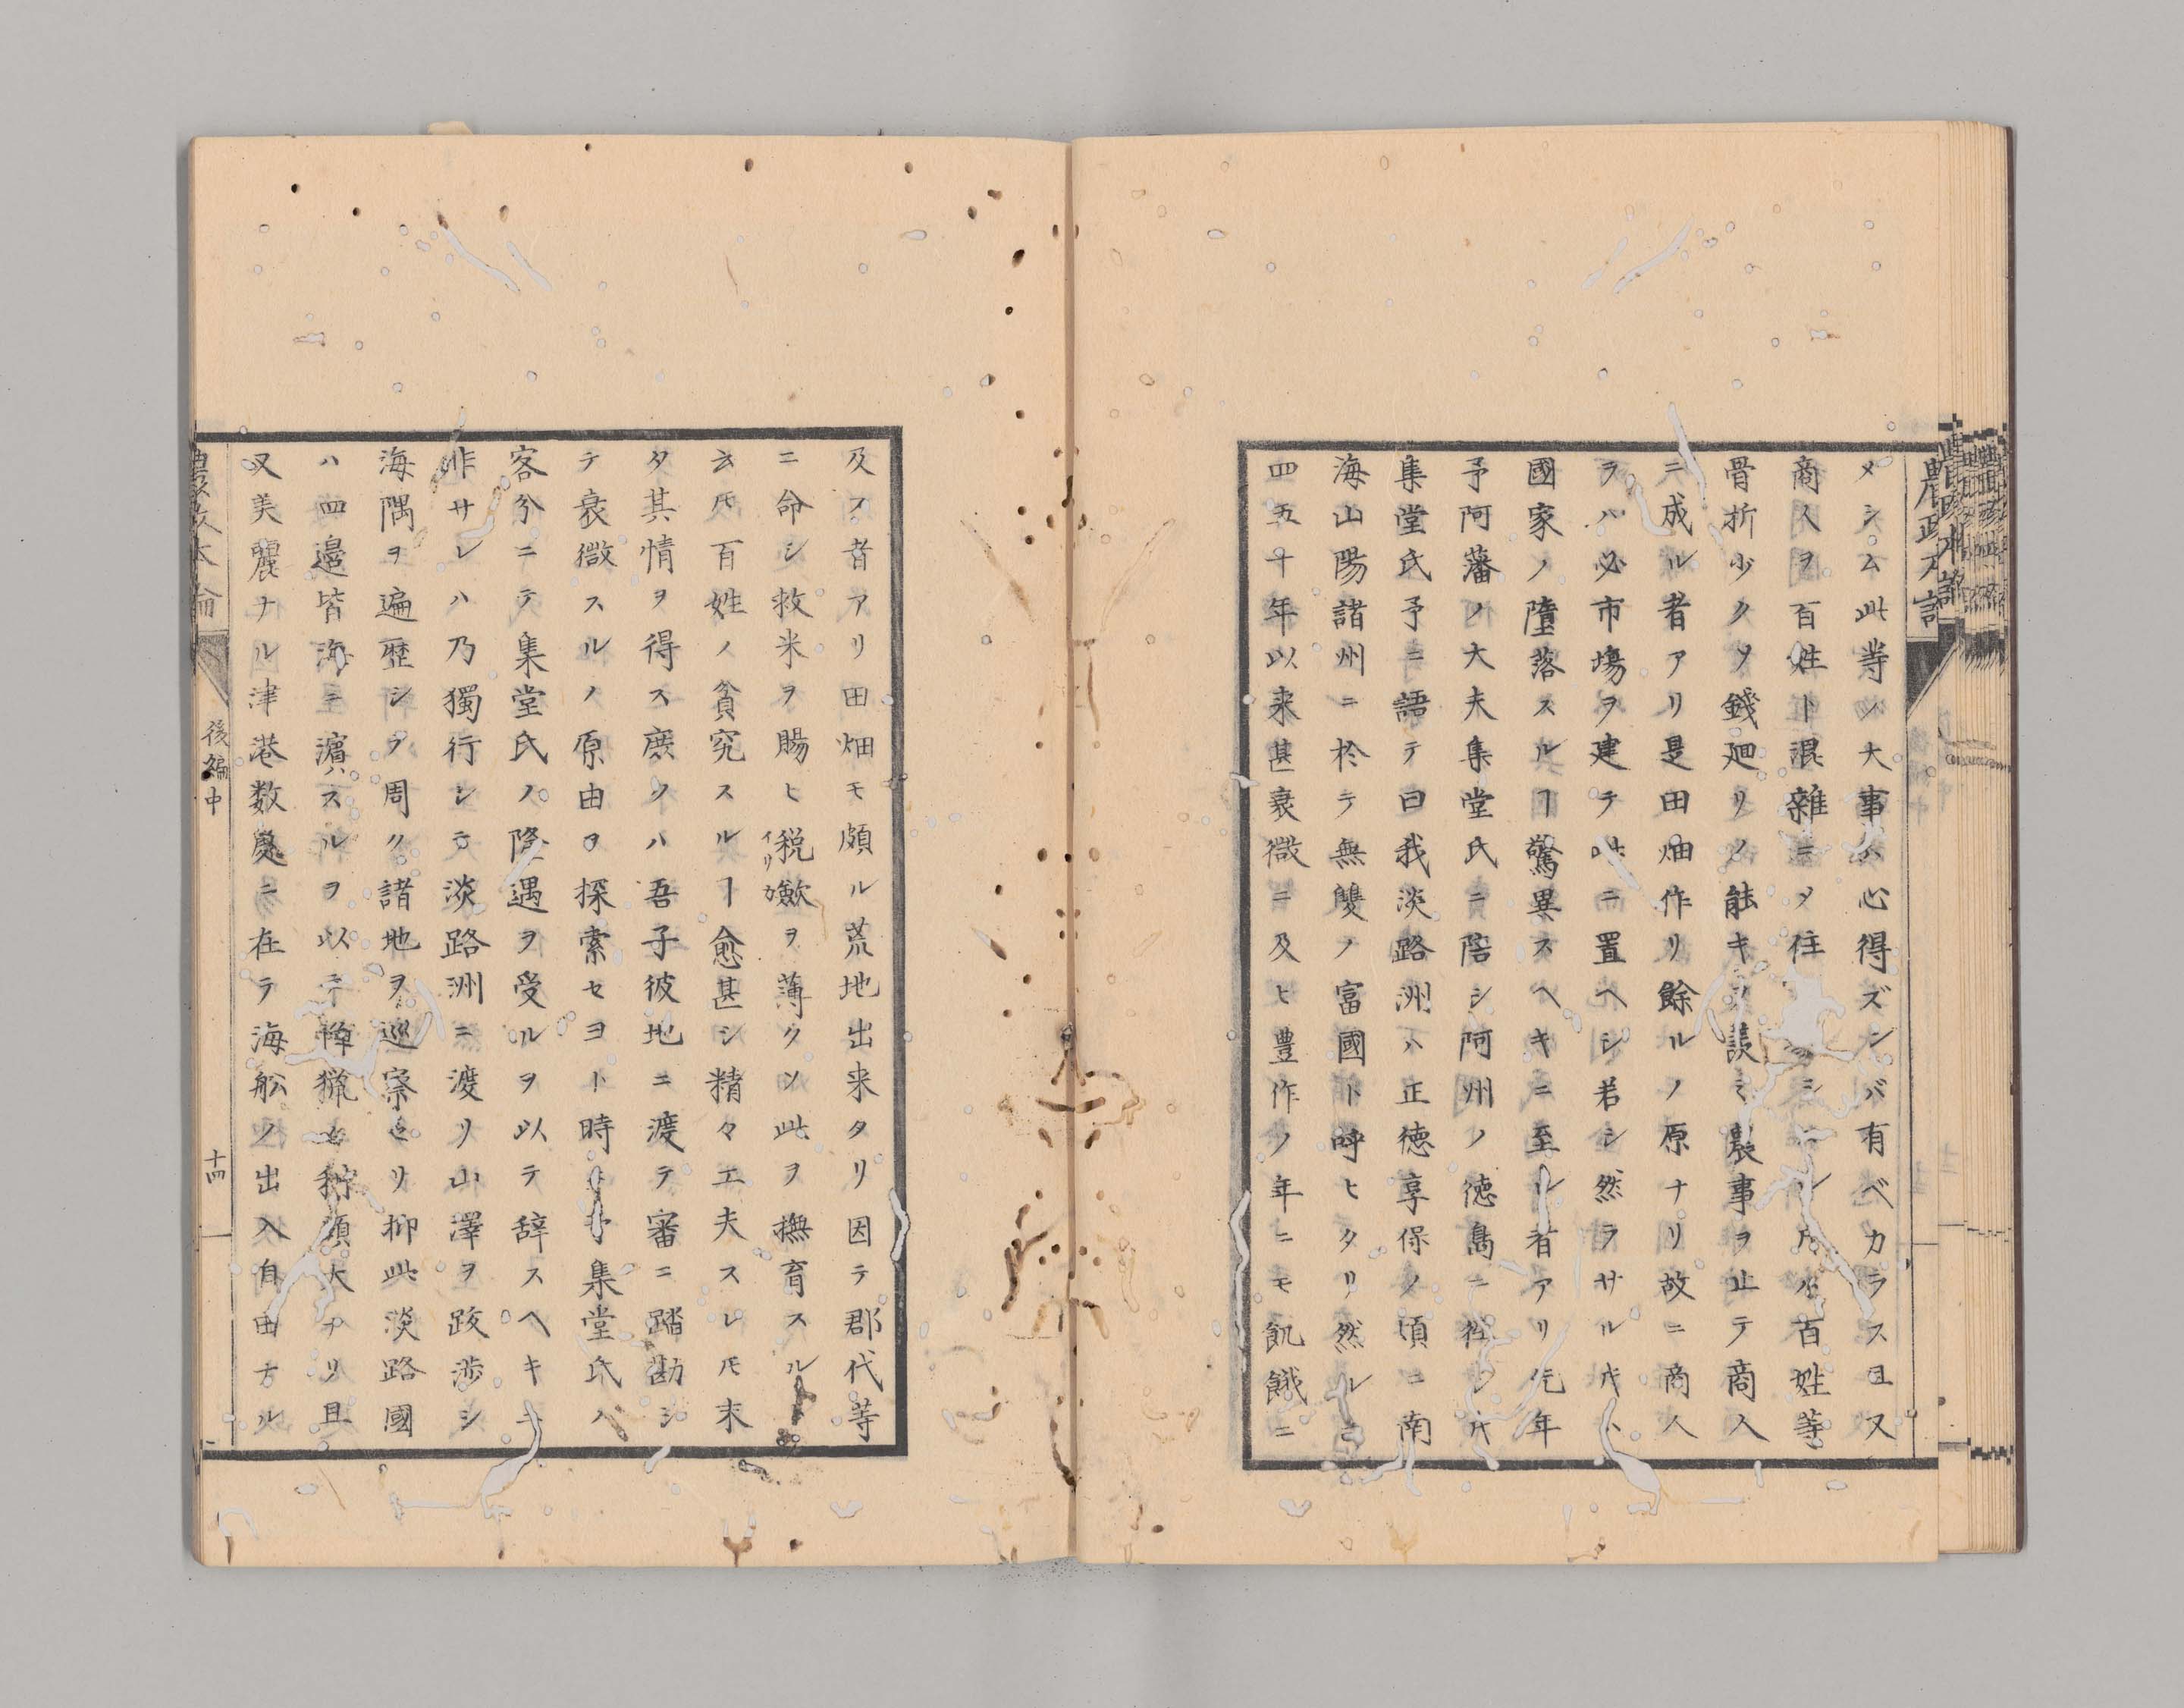 メシム此等ノ大事ハ心得ズンバ有ベカラス且又
商人ヲ百姓ト混雑ニメ住
骨折少クソ錢廻リノ能キヲ羨ミ農事ヲ止テ商人
ニ成ル者アリ是田畑作リ餘ルノ原ナリ故ニ商人
ヲハ必市場ヲ建テ此ニ置ヘシ若シ然ラサルキハ
國家ノ墮落スルヿ驚異スヘキニ至ル者アリ先年
予阿藩ノ大夫集堂氏ニ陪シ阿州ノ徳島ニ
集堂氏予ニ語テ曰我淡路洲ハ正徳享保ノ頃ニ南
海山陽諸州ニ於テ無雙ノ富國ト呼ヒタリ然レ
四五十年以来甚衰微ニ及ヒ豊作ノ年ニモ飢餓ニ
及フ者アリ田畑モ頗ル荒地出来タリ因テ郡代等
ニ命シ救米ヲ賜ヒ税斂ヲ薄クソ此ヲ撫育スル
云𪜈百姓ノ貧究スルヿ愈甚シ精々工夫スレ𪜈末
タ其情ヲ得ス庶クハ吾子彼地ニ渡テ審ニ踏勘シ
テ衰微スルノ原由ヲ探索セヨト時ニ予集堂氏ハ
客分ニテ集堂氏ノ隆遇ヲ受ルヲ以テ辞スヘキ
非サレハ乃獨行シテ淡路洲ニ渡リ山澤ヲ跋渉シ
海隅ヲ遍歴シテ周ク諸地ヲ巡察セリ抑此淡路國
ハ四邉皆海ニ濵スルヲ以テ
大ナリ且
又美麗ナル津港数處ニ在テ海舩ノ出入自由ナル
後編中
十四